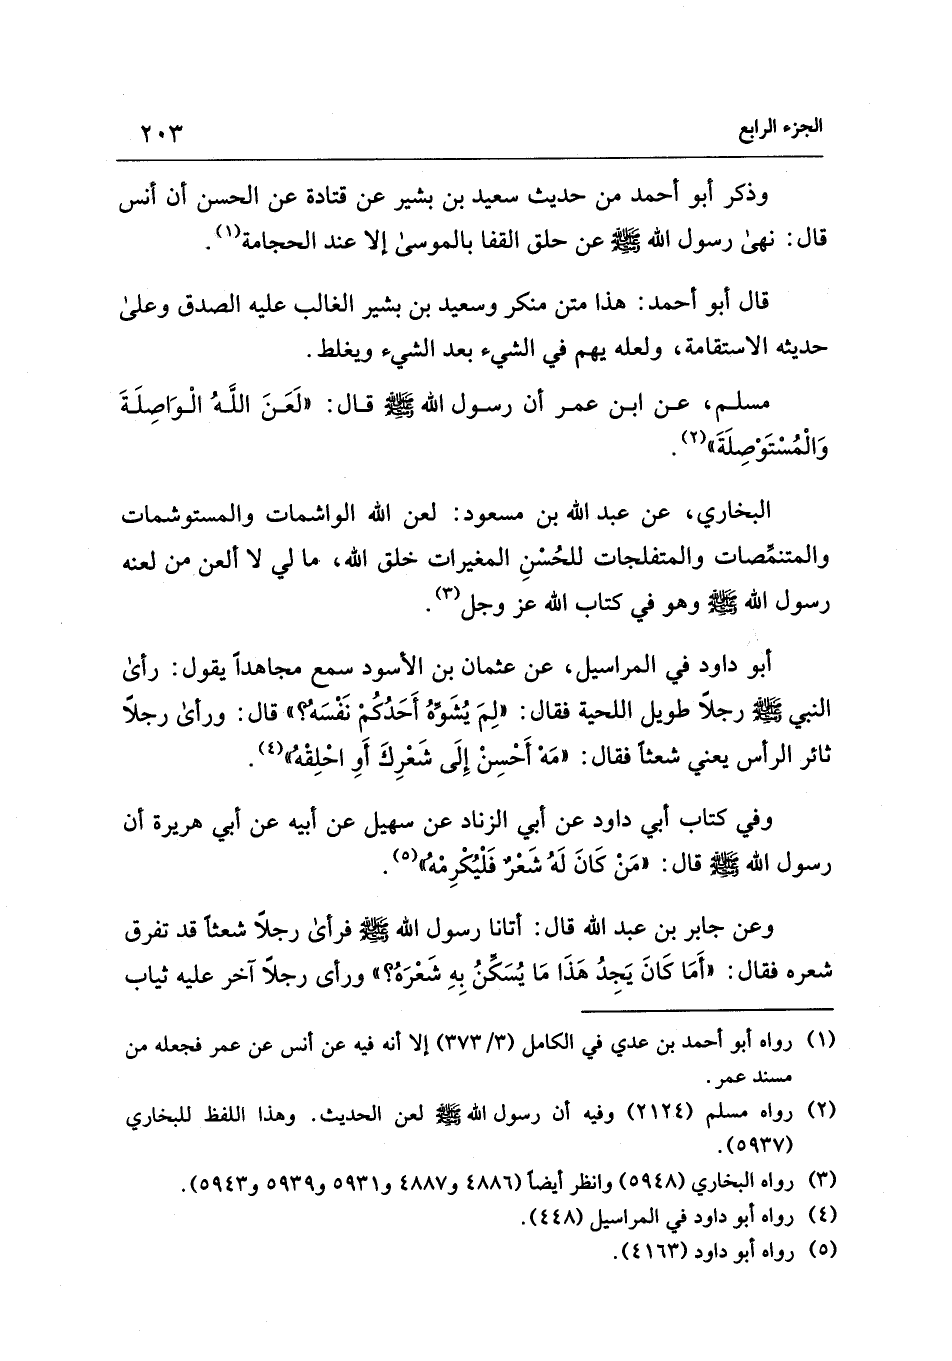 الجزء الرابع ٢٠٣
وذكر أبو أحمد من حديث سعيد بن بشير عن قتادة عن الحسن أن أنس
قال: نهىٰ رسول الله ﷺ عن حلق القفا بالموسىٰ إلا عند الحجامة(١).
قال أبو أحمد: هذا متن منكر وسعيد بن بشير الغالب عليه الصدق وعلىٰ
حديثه الاستقامة، ولعله يهم في الشيء بعد الشيء ويغلط.
مسلم، عن ابن عمر أن رسول الله ﷺ قال: «لَعَنَ اللَّهُ الْوَاصِلَةَ
وَالْمُسْتَوْصِلَةَ»(٢).
البخاري، عن عبد الله بن مسعود: لعن الله الواشمات والمستوشمات
والمتنمِّصات والمتفلجات للحُسْنِ المغيرات خلق الله، ما لي لا ألعن من لعنه
رسول الله ﷺ وهو في كتاب الله عز وجل(٣).
أبو داود في المراسيل، عن عثمان بن الأسود سمع مجاهداً يقول: رأىٰ
النبي ﷺ رجلاً طويل اللحية فقال: «لِمَ يُشَوِّهُ أَحَدُكُمْ نَفْسَهُ؟» قال: ورأىٰ رجلاً
ثائر الرأس يعني شعثاً فقال: «مَهْ أَحْسِنْ إِلَى شَعْرِكَ أَوِ احْلِقْهُ»(٤).
وفي كتاب أبي داود عن أبي الزناد عن سهيل عن أبيه عن أبي هريرة أن
رسول الله ﷺ قال: «مَنْ كَانَ لَهُ شَعْرٌ فَلْيُكْرِمْهُ»(٥).
وعن جابر بن عبد الله قال: أتانا رسول الله ﷺ فرأىٰ رجلاً شعثاً قد تفرق
شعره فقال: «أَمَا كَانَ يَجِدُ هَذَا مَا يُسَكِّنُ بِهِ شَعْرَهُ؟» ورأى رجلاً آخر عليه ثياب
(١) رواه أبو أحمد بن عدي في الكامل (٣/ ٣٧٣) إلا أنه فيه عن أنس عن عمر فجعله من
مسند عمر.
(٢) رواه مسلم (٢١٢٤) وفيه أن رسول الله ﷺ لعن الحديث. وهذا اللفظ للبخاري
(٥٩٣٧).
(٣) رواه البخاري (٥٩٤٨) وانظر أيضاً (٤٨٨٦ و٤٨٨٧ و٥٩٣١ و٥٩٣٩ و٥٩٤٣).
(٤) رواه أبو داود في المراسيل (٤٤٨).
(٥) رواه أبو داود (٤١٦٣).